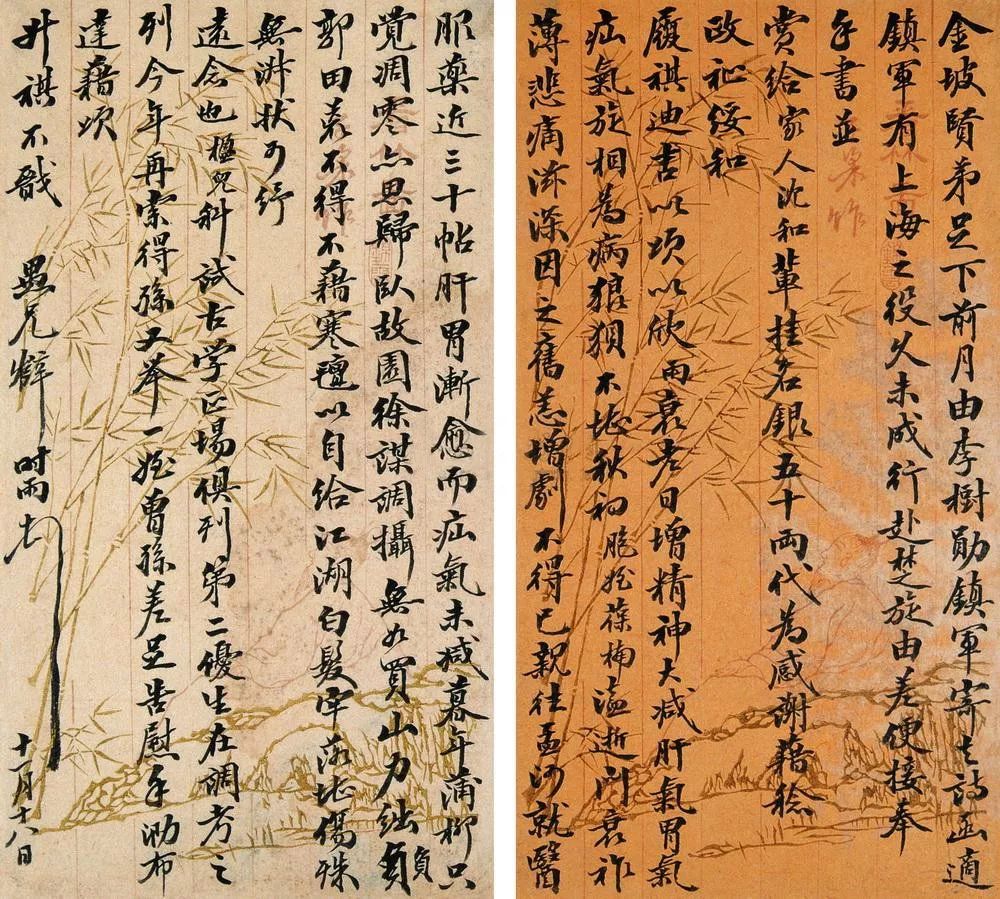 金坡賢弟足下前月由李樹勛鎮軍寄去詩函適
鎮軍有上海之役久未成行赴楚之旋由差使接奉
手書並
賞給家人沈和輩挂名銀五十兩代為感謝藉稔
政祉綏和
履祺迪吉以頌以欣雨衰老日增精神大減肝氣胃氣
疝氣旋相為病狼狽不堪秋初胞姪葆楠溘逝門衰祚
薄悲痛滋深因之舊恙增劇不得已親往孟河就醫
服藥近三十帖肝胃漸愈而疝氣未減暮年蒲柳只
覺凋零亦思歸臥故園徐謀調攝無如買山力絀負
郭田袁不得不藉寒氈以自給江湖白髮牢落堪傷殊
無淋狀可紓
遠念也極兒科試古學正場俱列第二優生在調考之
列今年再索得孫又舉一姪曾孫差足告慰手泐布
達藉頌
升祺不戩
愚兄 時雨
十一月十八日